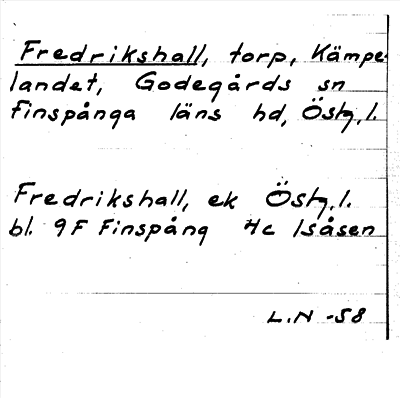 Fredrikshall, torp, Kämpe-
landet, Godegårds sn
Finspånga läns hd, Östg. l.
Fredrikshall, ek Östg. l.
bl. 9F Finspång 4c Isåsen
L.N -58